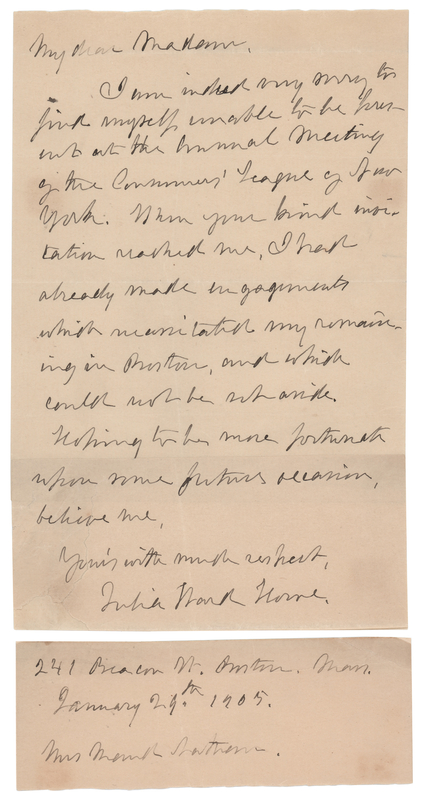 My dear Madam,
I am indeed very sorry to
find myself unable to be pres-
ent at the Annual Meeting
of the Consumers' League of New
York. When your kind invi-
tation reached me, I had
already made engagements
which necessitated my remain-
ing in Boston, and which
could not be set aside.
Hoping to be more fortunate
upon some future occasion,
believe me,
Yours with much respect,
Julia Ward Howe.
241 Beacon St. Boston. Mass.
January 29th 1905.
Mrs Maud Nathan.